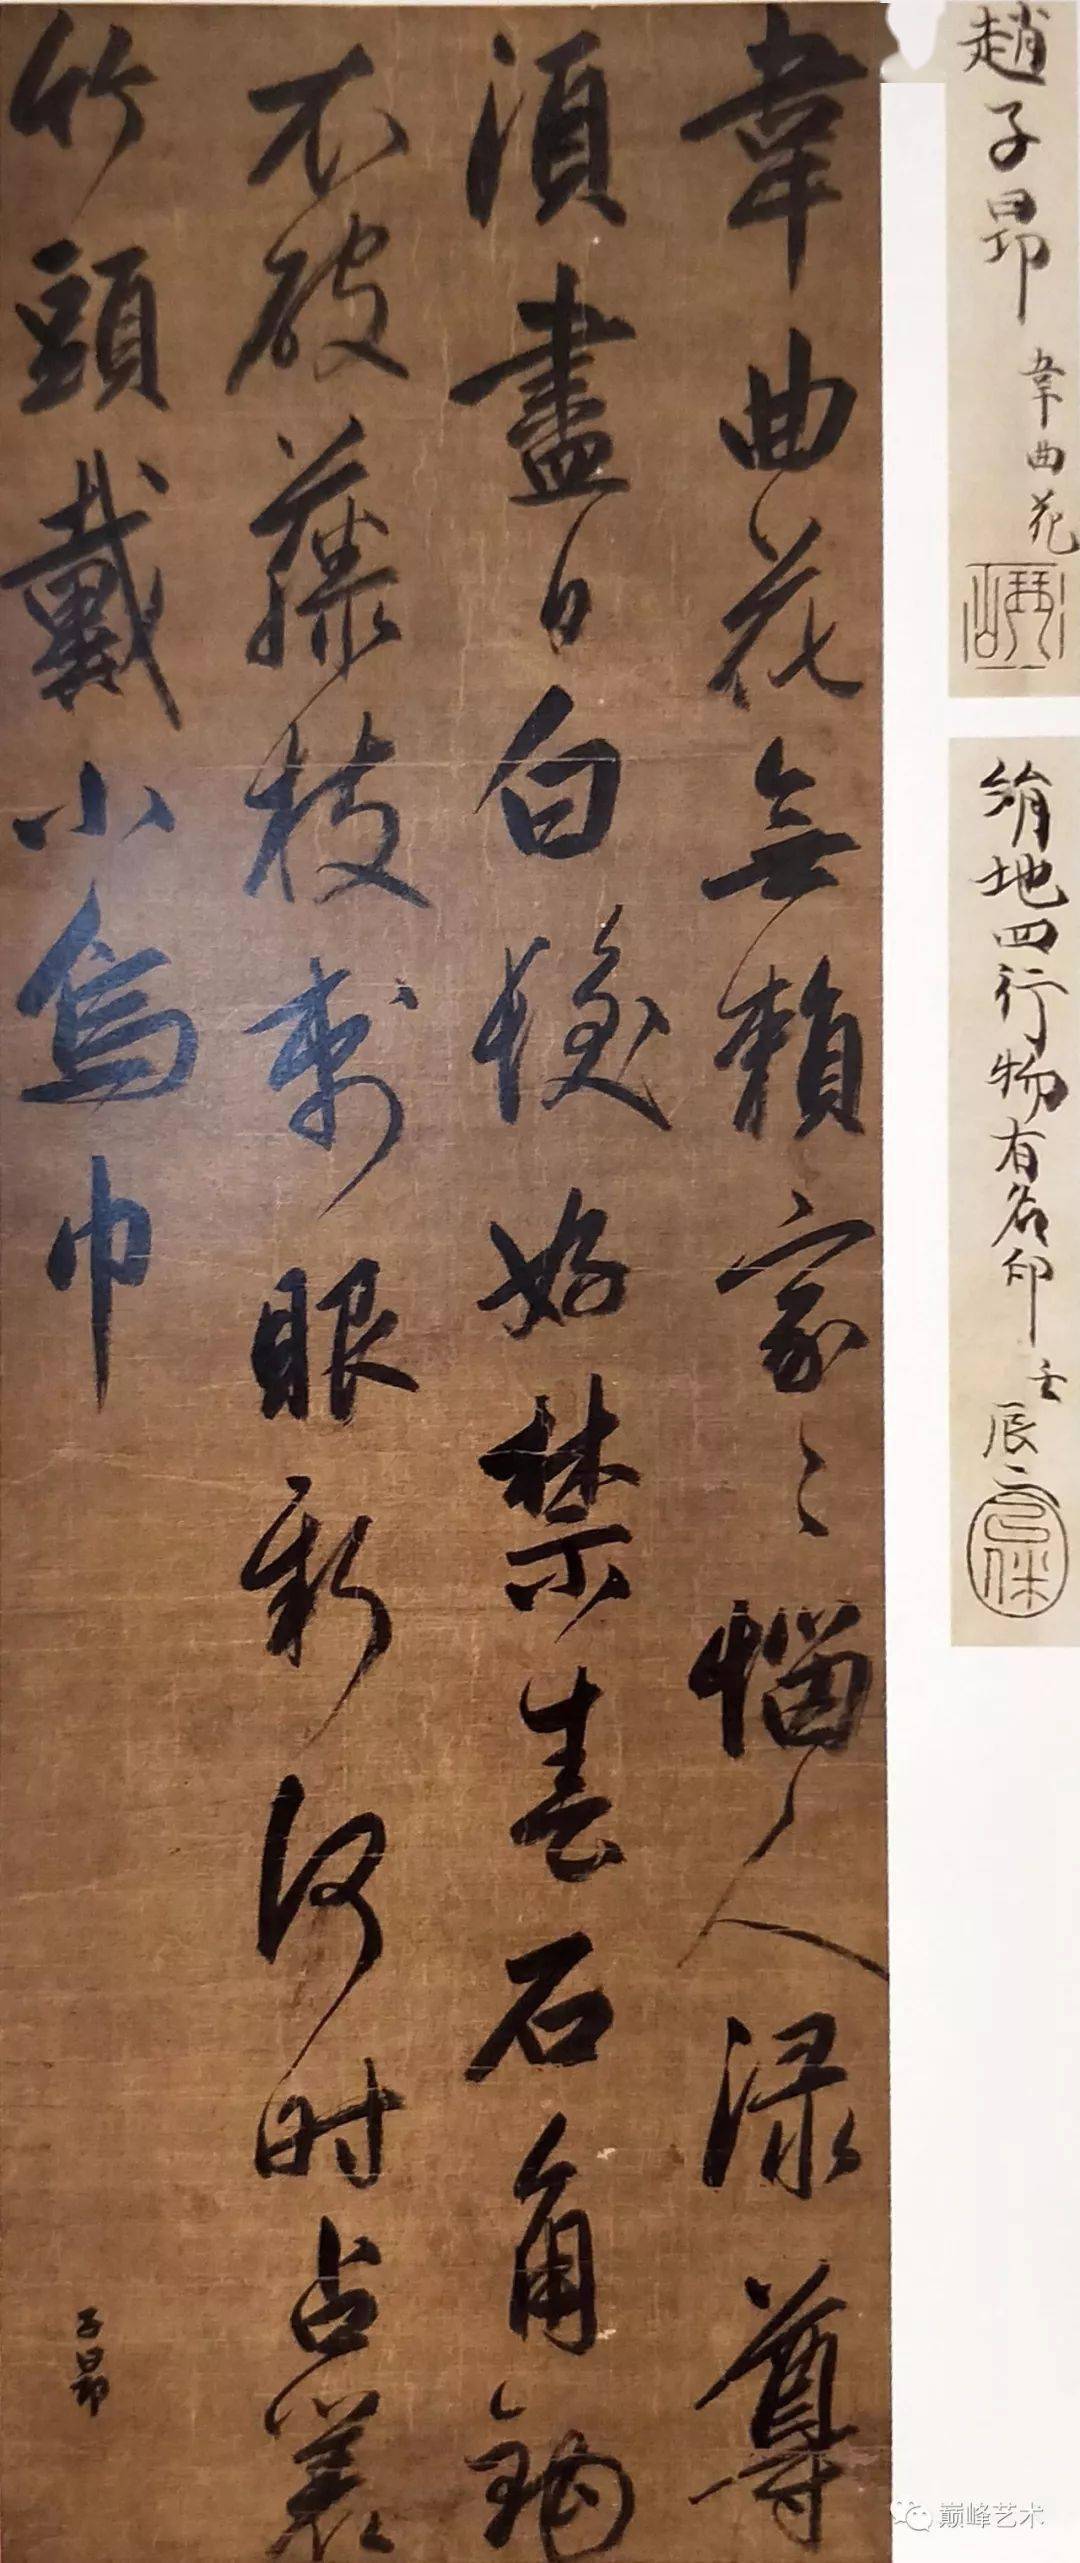 韋曲花無賴家〻惱人渌尊
須盡日白髮好禁春石角鉤
衣破藤枝刺眼新何时占叢
竹頭戴小烏巾
子昂
趙子昂 韋曲花
絹地四行物有名印 壬辰二
巅峰艺术